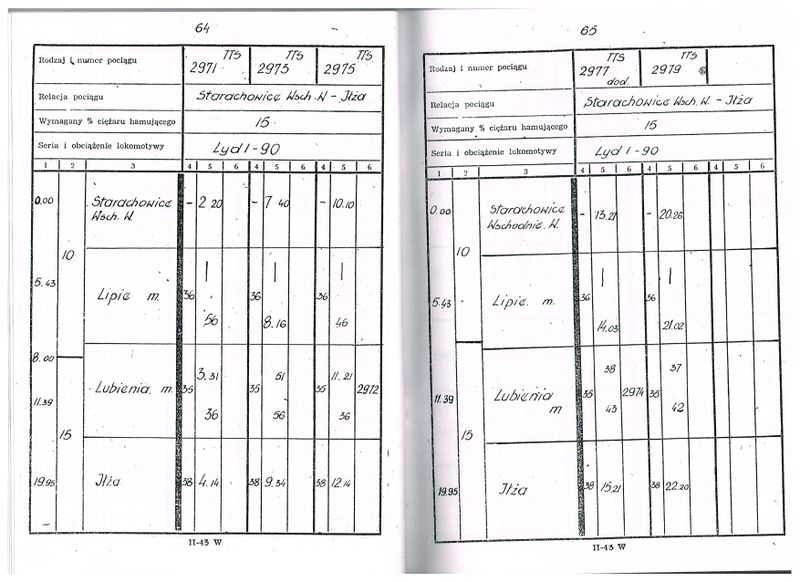 64
Rodzaj i numer pociągu
TTS 2971
TTS 2973
TTS 2975
Relacja pociągu
Starachowice Wsch. W - Iłża
Wymagany % ciężaru hamującego
15
Seria i obciążenie lokomotywy
Lyd1-90
1 2 3 4 5 6 4 5 6 4 5 6
0.00 Starachowice - 2 20 - 7 40 - 10.10
Wsch. W.
10
5.43 Lipie m. 36 | 36 | 36 |
56 8.16 46
8.00
3.31 51 11.21
11.39 Lubienia m. 35 35 35 2972
36 56 36
15
19.95 Iłża 38 4.14 38 9.34 38 12.14
II-43 W
65
Rodzaj i numer pociągu
TTS 2977 dod.
TTS 2979
Relacja pociągu
Starachowice Wsch. W - Iłża
Wymagany % ciężaru hamującego
15
Seria i obciążenie lokomotywy
Lyd1-90
1 2 3 4 5 6 4 5 6 4 5 6
0.00 Starachowice - 13.27 - 20.26
Wschodnie. W.
10
5.43 Lipie. m. 36 | 36 |
14.03 21.02
38 37
11.39 Lubienia 35 2974 35
m 43 42
15
19.95 Iłża 38 15.21 38 22.20
II-43 W